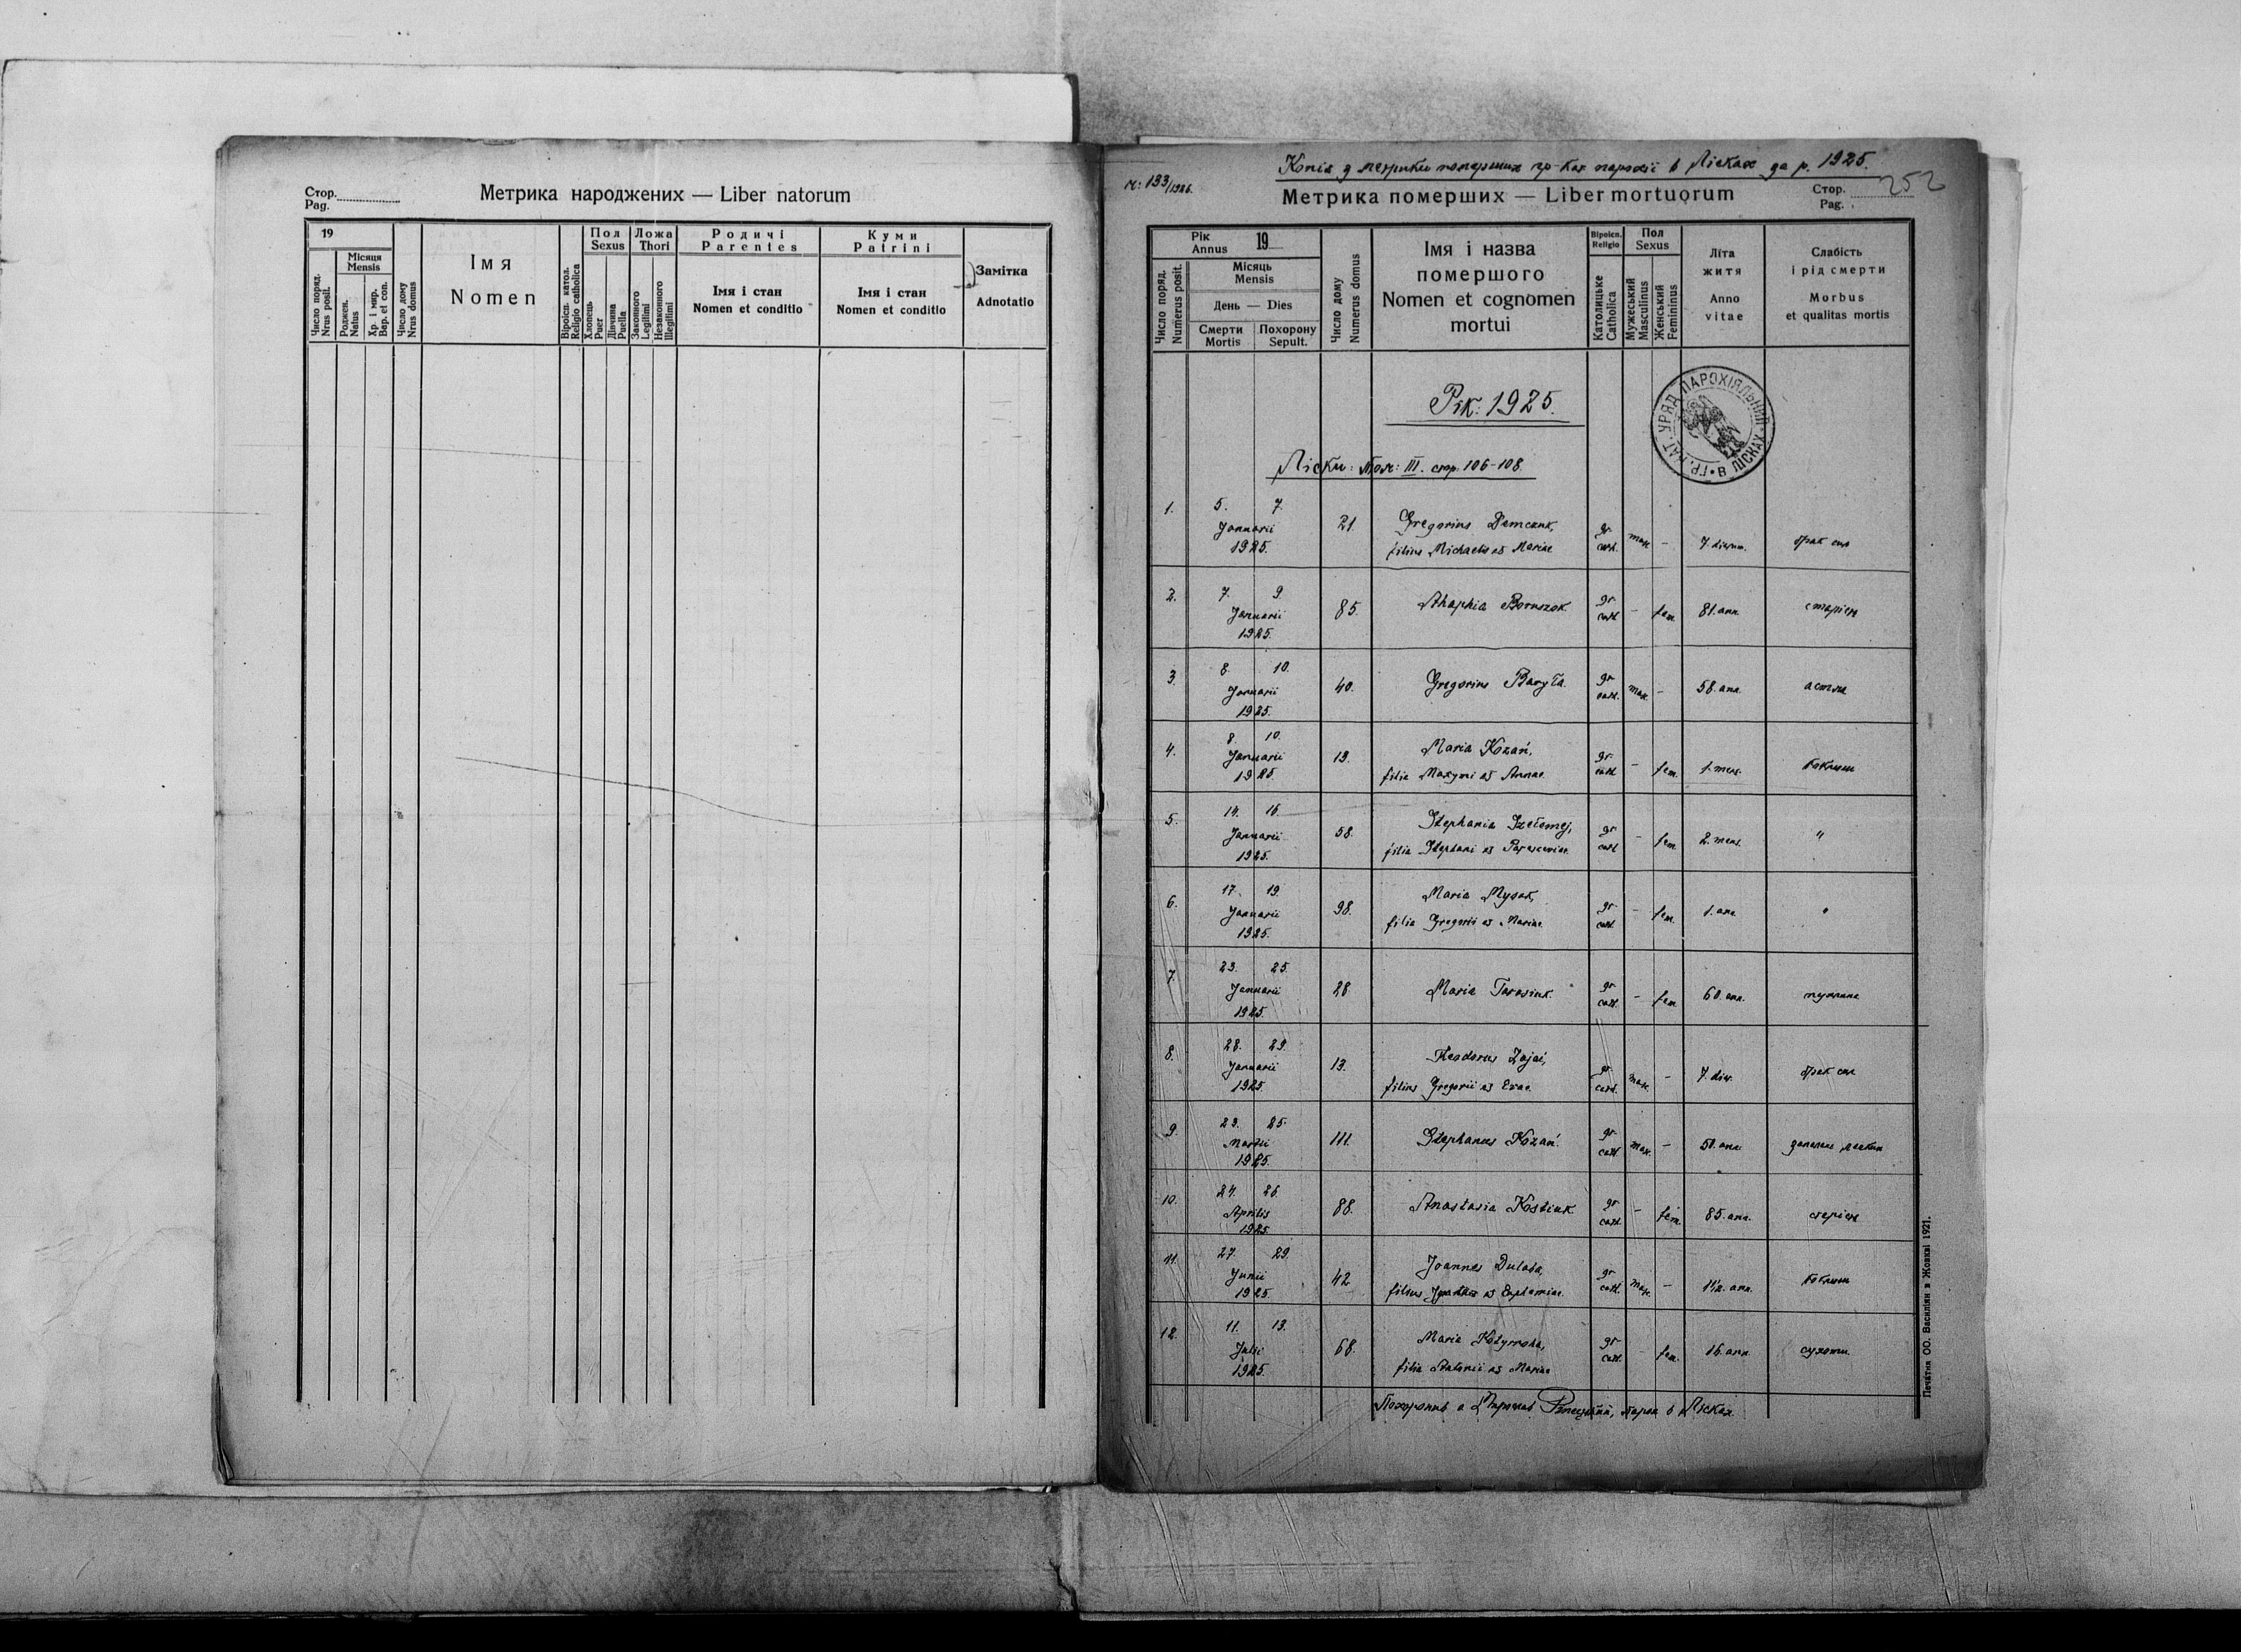 Стор.
Pag.
Метрика народжених — Liber natorum
19
Місяця
Mensis
Число поряд.
Nrus posit.
Роджен.
Natus
Хр. і мир.
Bap. et con.
Число дому
Nrus domus
Імя
Nomen
Віроісп. катол.
Religio catholica
Пол
Sexus
Хлопець
Puer
Дівчина
Puella
Ложа
Thori
Законного
Legitimi
Незаконного
Illegitimi
Родичі
Parentes
Імя і стан
Nomen et conditio
Куми
Patrini
Імя і стан
Nomen et conditio
Замітка
Adnotatio
Копія з метрики померших гр-кат парохії в Лісках за р. 1925.
ч: 133/1926.
Метрика померших — Liber mortuorum
Стор. 252
Pag.
Рік
Annus 19
Число поряд.
Numerus posit.
Місяць
Mensis
День — Dies
Смерти
Mortis
Похорону
Sepult.
Число дому
Numerus domus
Імя і назва
помершого
Nomen et cognomen
mortui
Віроісп.
Religio
Католицьке
Catholica
Пол
Sexus
Мужеський
Masculinus
Женський
Femininus
Літа
житя
Anno
vitae
Слабість
і рід смерти
Morbus
et qualitas mortis
Рік: 1925.
ГР. КАТ. УРЯД ПАРОХІЯЛЬНИЙ В ЛІСКАХ
Ліски: Том: III. стор. 106-108.
1. 5. 7. Januarii 1925. 21. Gregorius Demczuk, gr. cath. mas. – 7. dierum. брак сил
filius Michaelis et Mariae
2. 7. 9. Januarii 1925. 85. Ahaphia Boruszok gr. cath. – fem. 81. ann. старість
3. 8. 10. Januarii 1925. 40. Gregorius Baryła. gr. cath. mas. – 58. ann. астма
4. 8. 10. Januarii 1925. 13. Maria Kozań, gr. cath. – fem. 1. mens. коклюш
filia Maxymi et Annae
5. 14. 16. Januarii 1925. 58. Stephania gr. cath. – fem. 2. mens. "
filia Stephani et Parasceviae
6. 17. 19. Januarii 1925. 98. Maria gr. cath. – fem. 1. ann. "
filia Gregorii et Mariae
7. 23. 25. Januarii 1925. 28. Maria Tarasiuk. gr. cath. – fem. 60. ann. пухлина
8. 28. 29. Januarii 1925. 13. Theodorus Zajać, gr. cath. mas. – 7. dier. брак сил
filius Gregorii et Evae
9. 23. 25. Martii 1925. 111. Stephanus Kozań. gr. cath. mas. – 50. ann. запалення легких
10. 24. 26. Aprilis 1925. 88. Anastasia Kostiuk gr. cath. – fem. 85. ann. старість
11. 27. 29. Junii 1925. 42 Joannes gr. cath. mas. – 1 1/2. ann. коклюш
filius et Euphemiae
12. 11. 13. Julii 1925. 68. Maria gr. cath. – fem. 16. ann. сухоти
filia Antonii et Mariae
Похоронив о. парох в Лісках
Печатня ОО. Василіян в Жовкві 1921.